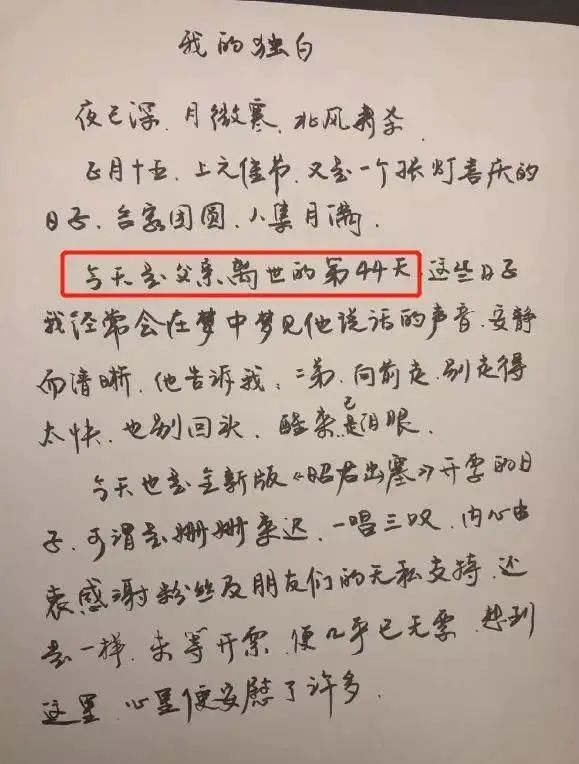 我的独白
夜已深、月微寒、北风肃杀
正月十五、上元佳节、又是一个张灯喜庆的
日子、合家团圆、人集月满、
今天是父亲离世的第44天、这些日子
我经常会在梦中梦见他说话的声音、安静
而清晰、他告诉我、二弟、向前走、别走得
太快、也别回头、醒来已是泪眼、
今天也是全新版《昭君出塞》开票的日
子、可谓是姗姗来迟、一唱三叹、内心由
衷感谢粉丝及朋友们的无私支持、还
是一样、未等开票、便几乎已无票、想到
这里、心里便安慰了许多、